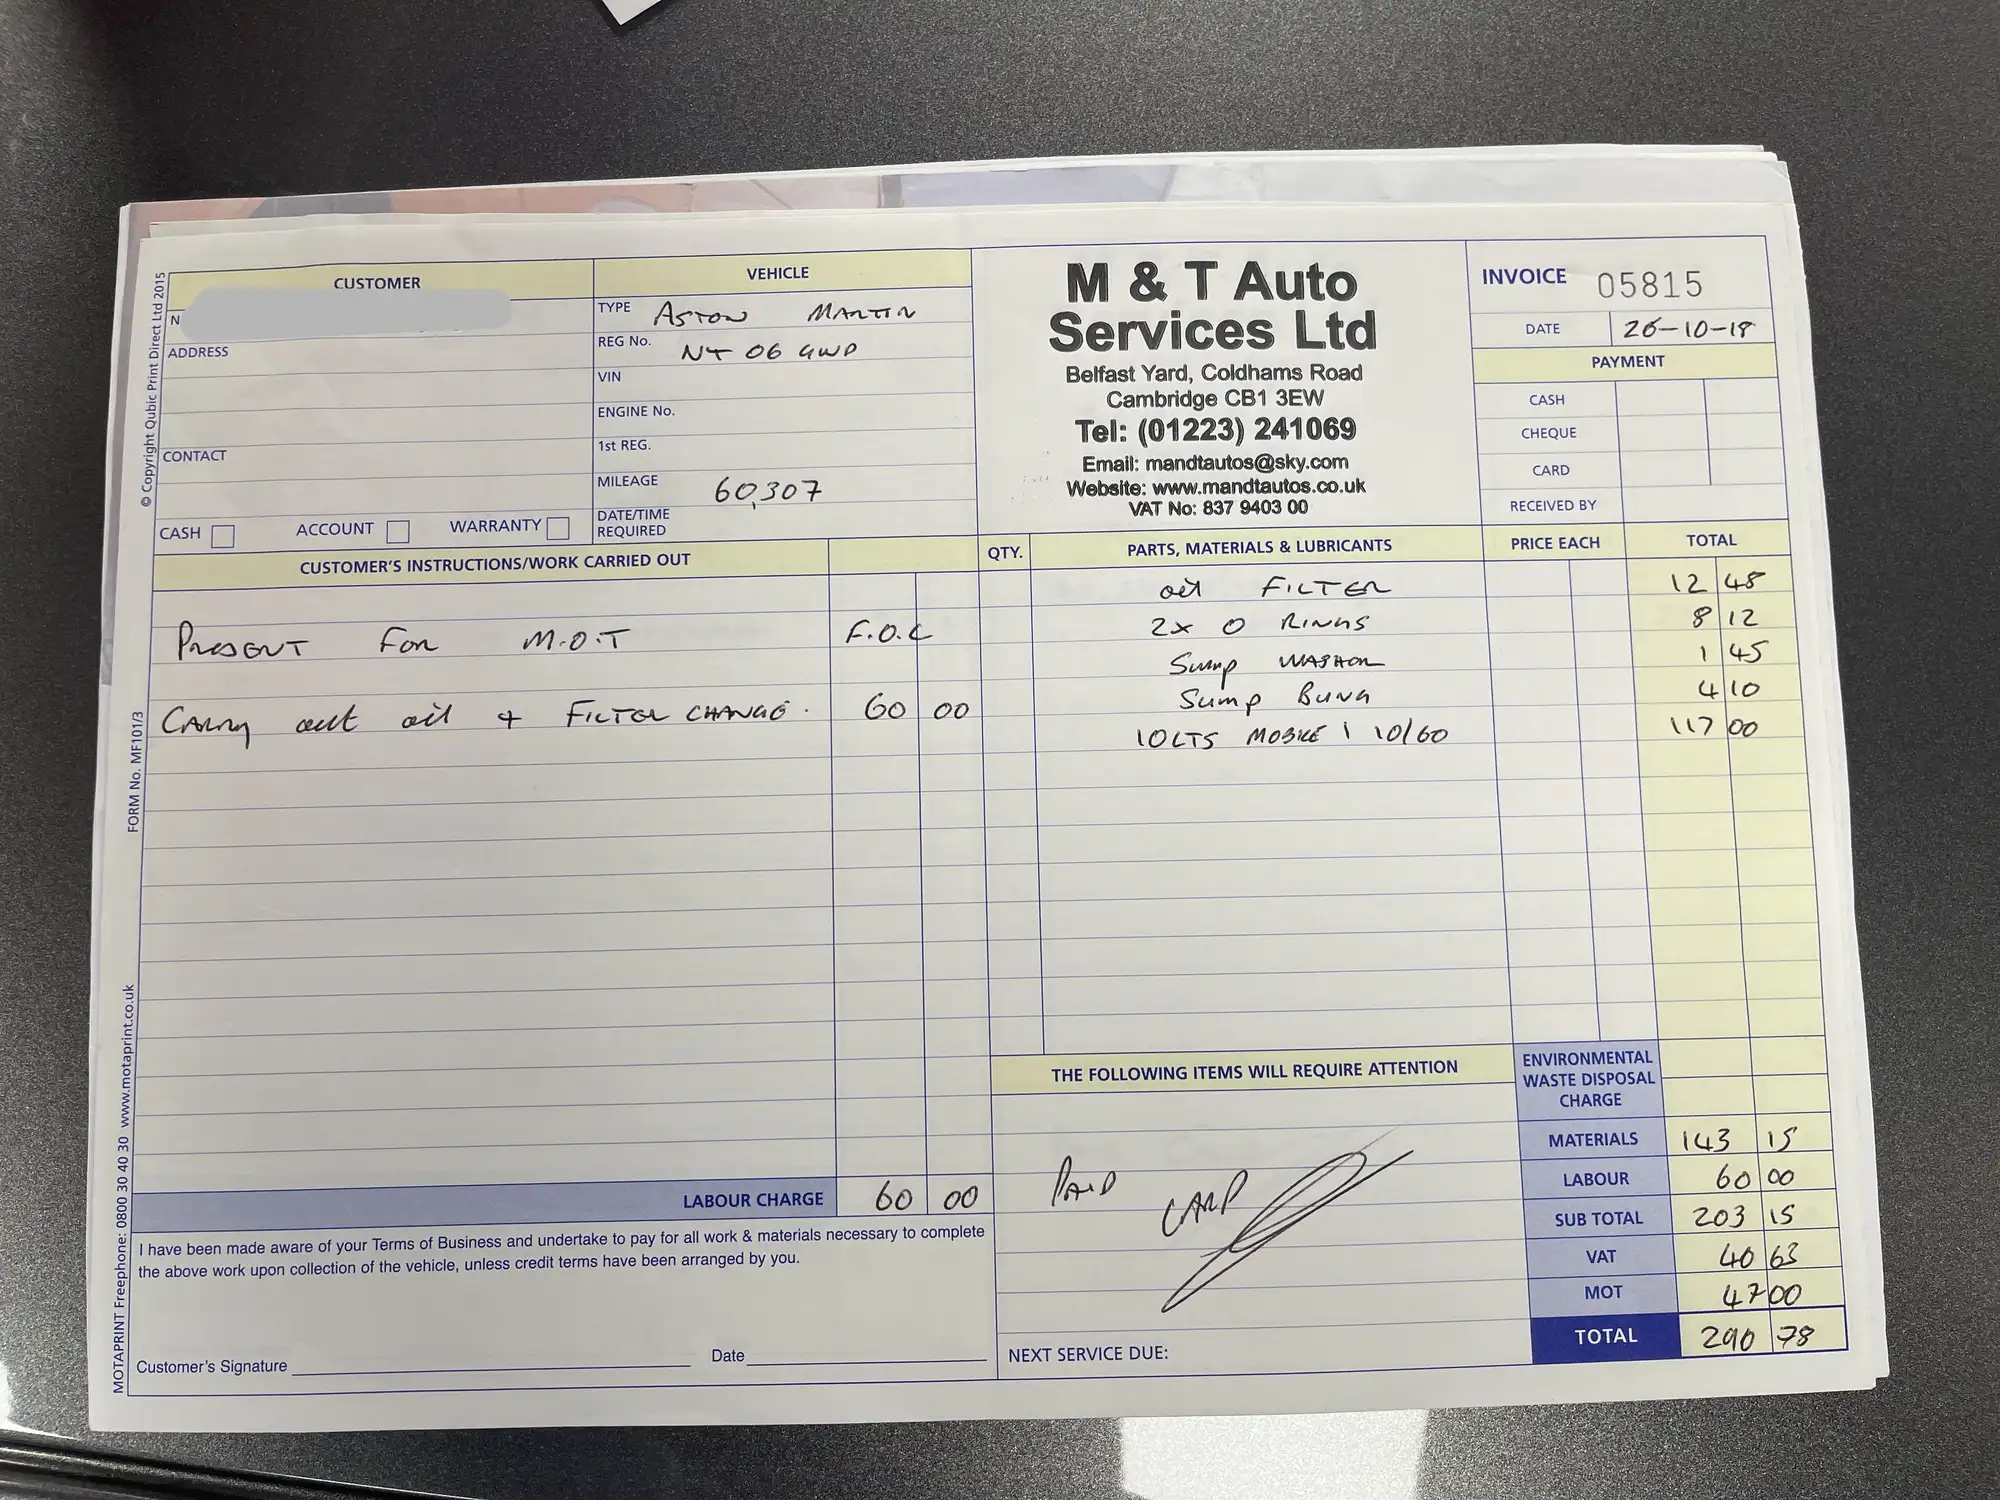 © Copyright Qubic Print Direct Ltd 2015
FORM No. MF101/3
MOTAPRINT Freephone: 0800 30 40 30 www.motaprint.co.uk
CUSTOMER
N
ADDRESS
CONTACT
CASH ACCOUNT WARRANTY
VEHICLE
TYPE ASTON MARTIN
REG No. NT 06 GWP
VIN
ENGINE No.
1st REG.
MILEAGE 60,307
DATE/TIME
REQUIRED
M & T Auto
Services Ltd
Belfast Yard, Coldhams Road
Cambridge CB1 3EW
Tel: (01223) 241069
Email: mandtautos@sky.com
Website: www.mandtautos.co.uk
VAT No: 837 9403 00
INVOICE 05815
DATE 26-10-18
PAYMENT
CASH
CHEQUE
CARD
RECEIVED BY
CUSTOMER'S INSTRUCTIONS/WORK CARRIED OUT
PRESENT FOR M.O.T F.O.C
CARRY OUT OIL + FILTER CHANGE. 60 00
LABOUR CHARGE 60 00
I have been made aware of your Terms of Business and undertake to pay for all work & materials necessary to complete
the above work upon collection of the vehicle, unless credit terms have been arranged by you.
Customer's Signature Date
QTY. PARTS, MATERIALS & LUBRICANTS PRICE EACH TOTAL
OIL FILTER 12 48
2x O RINGS 8 12
SUMP WASHER 1 45
SUMP BUNG 4 10
10LTS MOBILE 1 10/60 117 00
THE FOLLOWING ITEMS WILL REQUIRE ATTENTION
PAID CARD
NEXT SERVICE DUE:
ENVIRONMENTAL
WASTE DISPOSAL
CHARGE
MATERIALS 143 15
LABOUR 60 00
SUB TOTAL 203 15
VAT 40 63
MOT 47 00
TOTAL 290 78